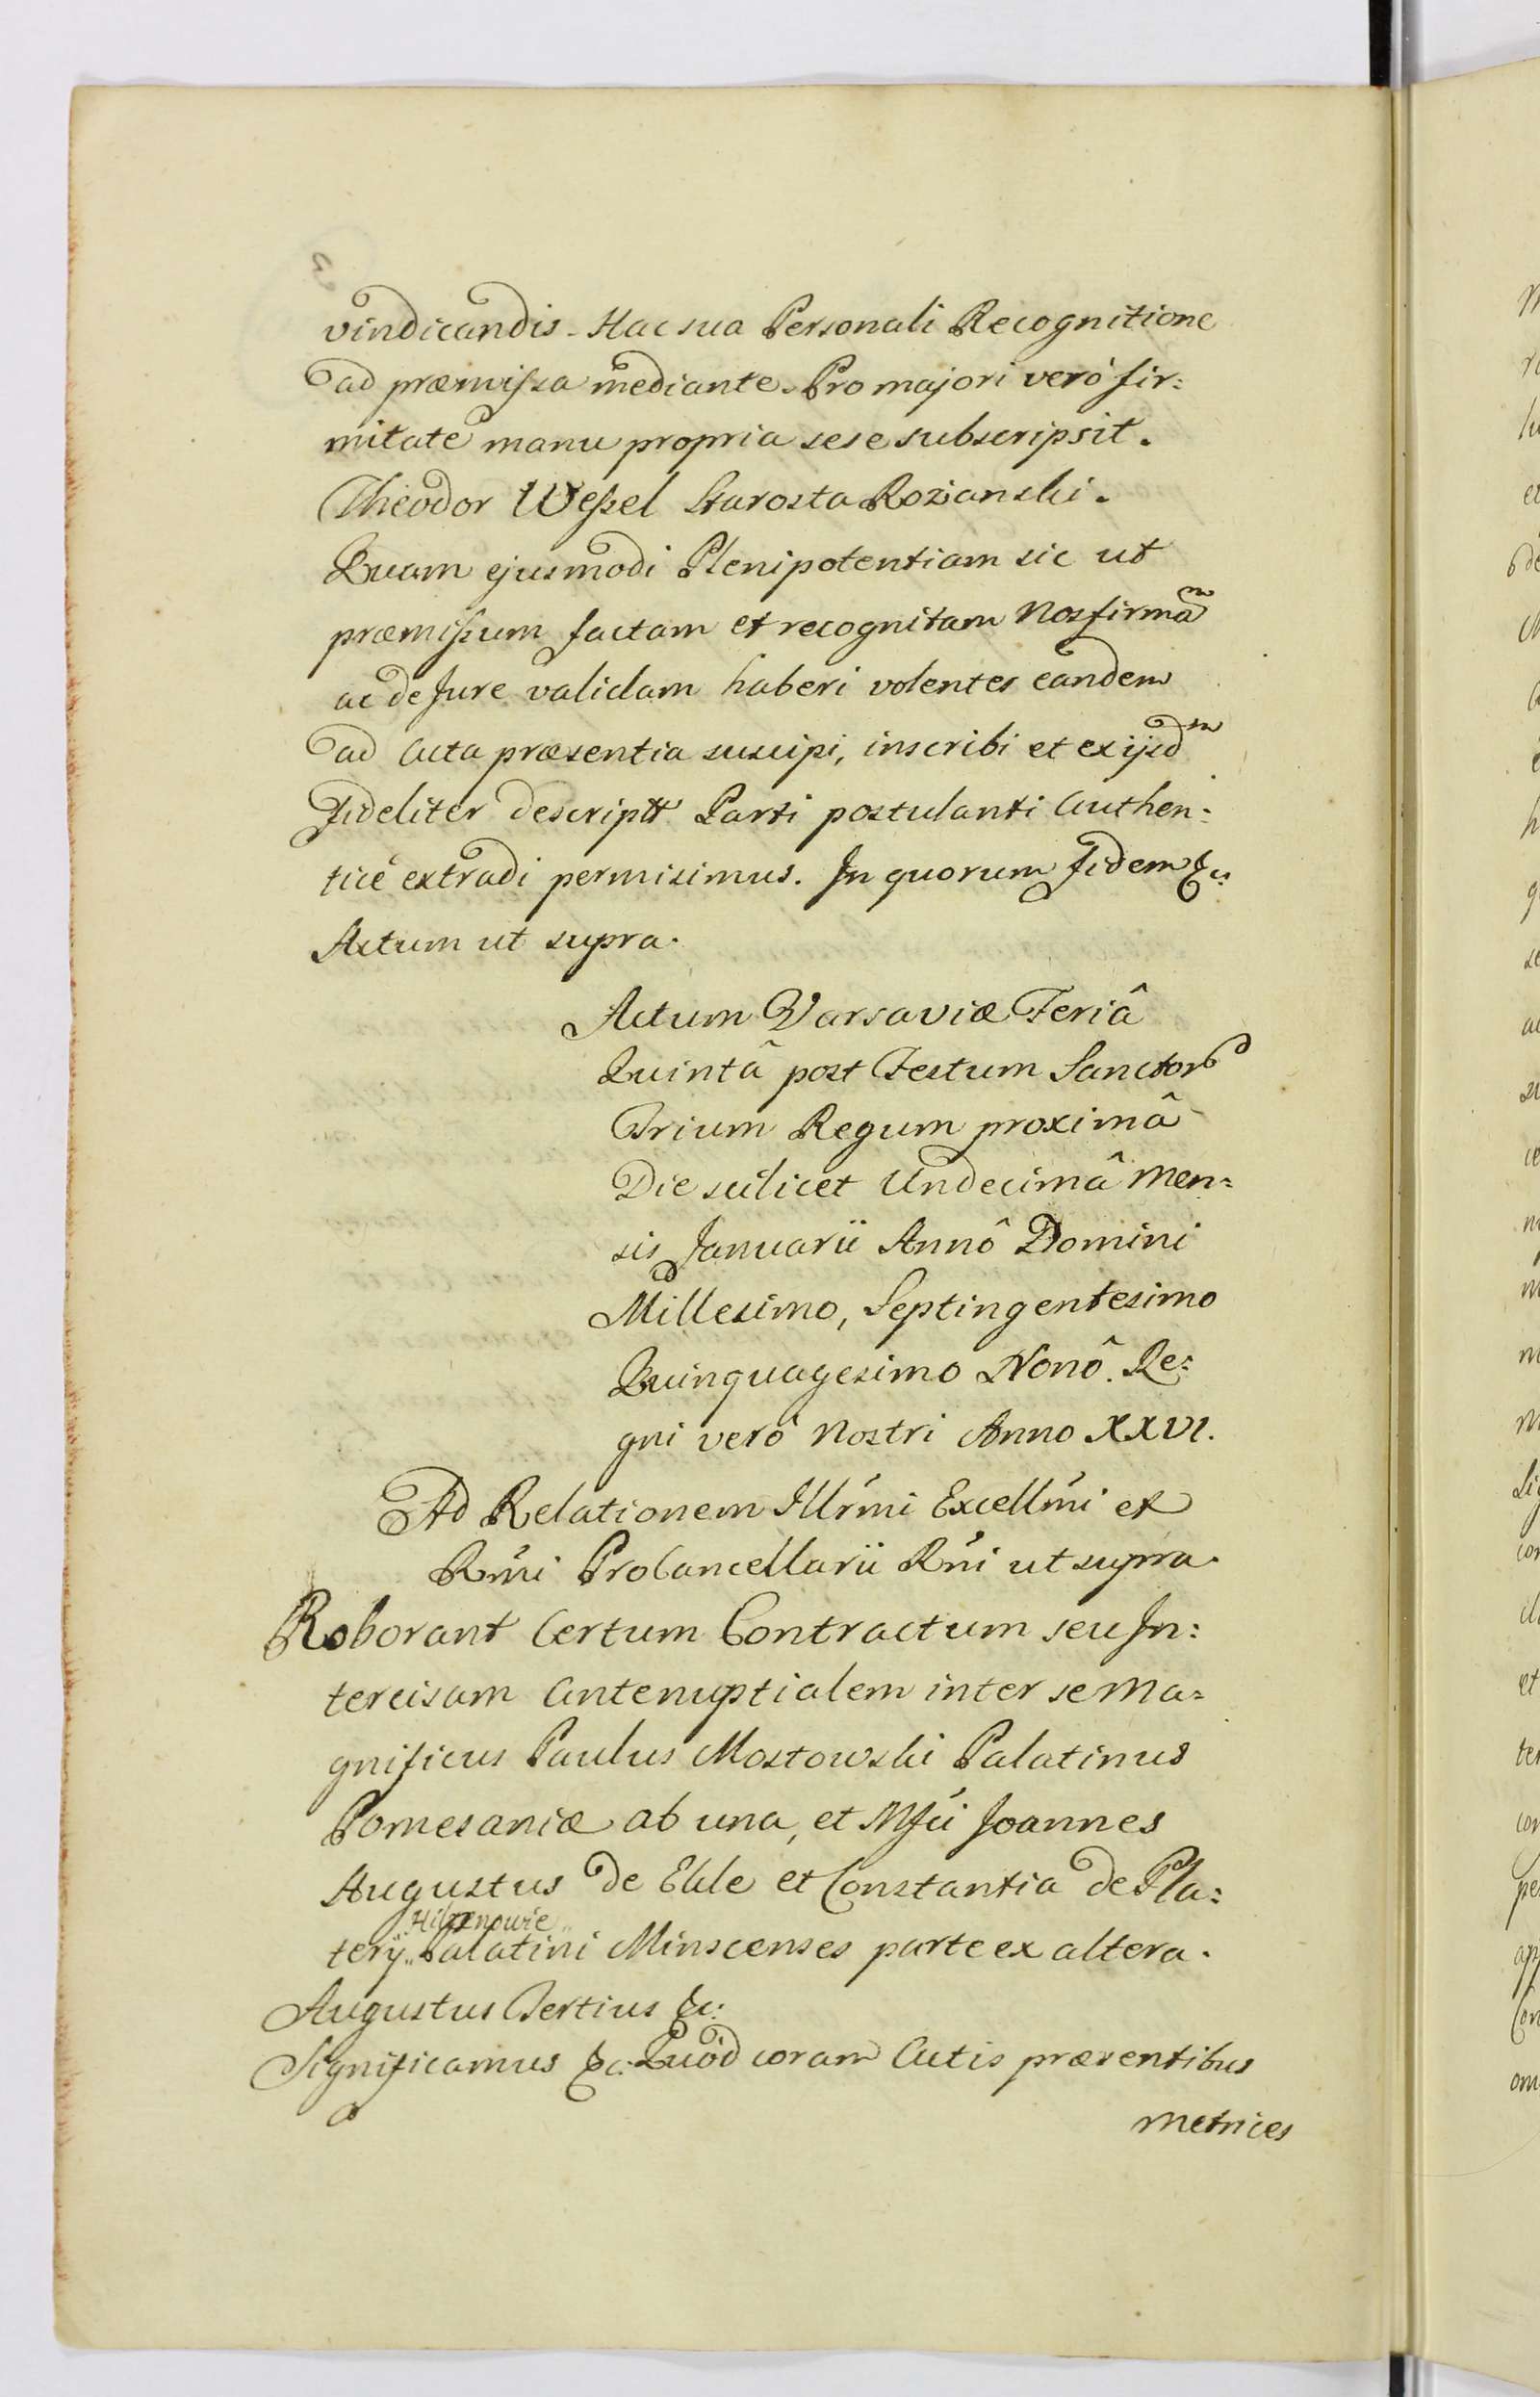 vindicandis. Hac sua Personali Recognitione
ad præmissa mediante. Pro majori verò fir:
mitate manu propria sese subscripsit.
Theodor Wessel Starosta Rozianski.
Quam ejusmodi Plenipotentiam sic ut
præmissum factam et recognitam Nos firmã
ac de Jure validam haberi volentes eandem
ad Acta præsentia suscipi, inscribi et ex ijsdm
Fideliter descriptt Parti postulanti Authen:
ticè extradi permisimus. In quorum Fidem &c:
Actum ut supra.
Actum Varsaviæ Feriâ
Quintâ post Festum Sanctor
Trium Regum proximâ
Die scilicet Undecimâ Men:
sis Januarii Annô Domini
Millesimo, Septingentesimo
Quinquagesimo Nonô. Re:
gni verò Nostri Anno XXVI.
Ad Relationem Illrmi Excellmi et
Rmi ProCancellarii Rni ut supra.
Roborant Certum Contractum seu In:
tercisam Antenuptialem inter se Ma:
gnificus Paulus Mostowski Palatinus
Pomeraniæ ab una, et Mfci Joannes
Augustus de Ekle et Constantia de Pla:
Hilzenowie
terÿ Palatini Minscenses parte ex altera.
Augustus Tertius &c:
Significamus &c. Quòd coram Actis præsentibus
Metrices